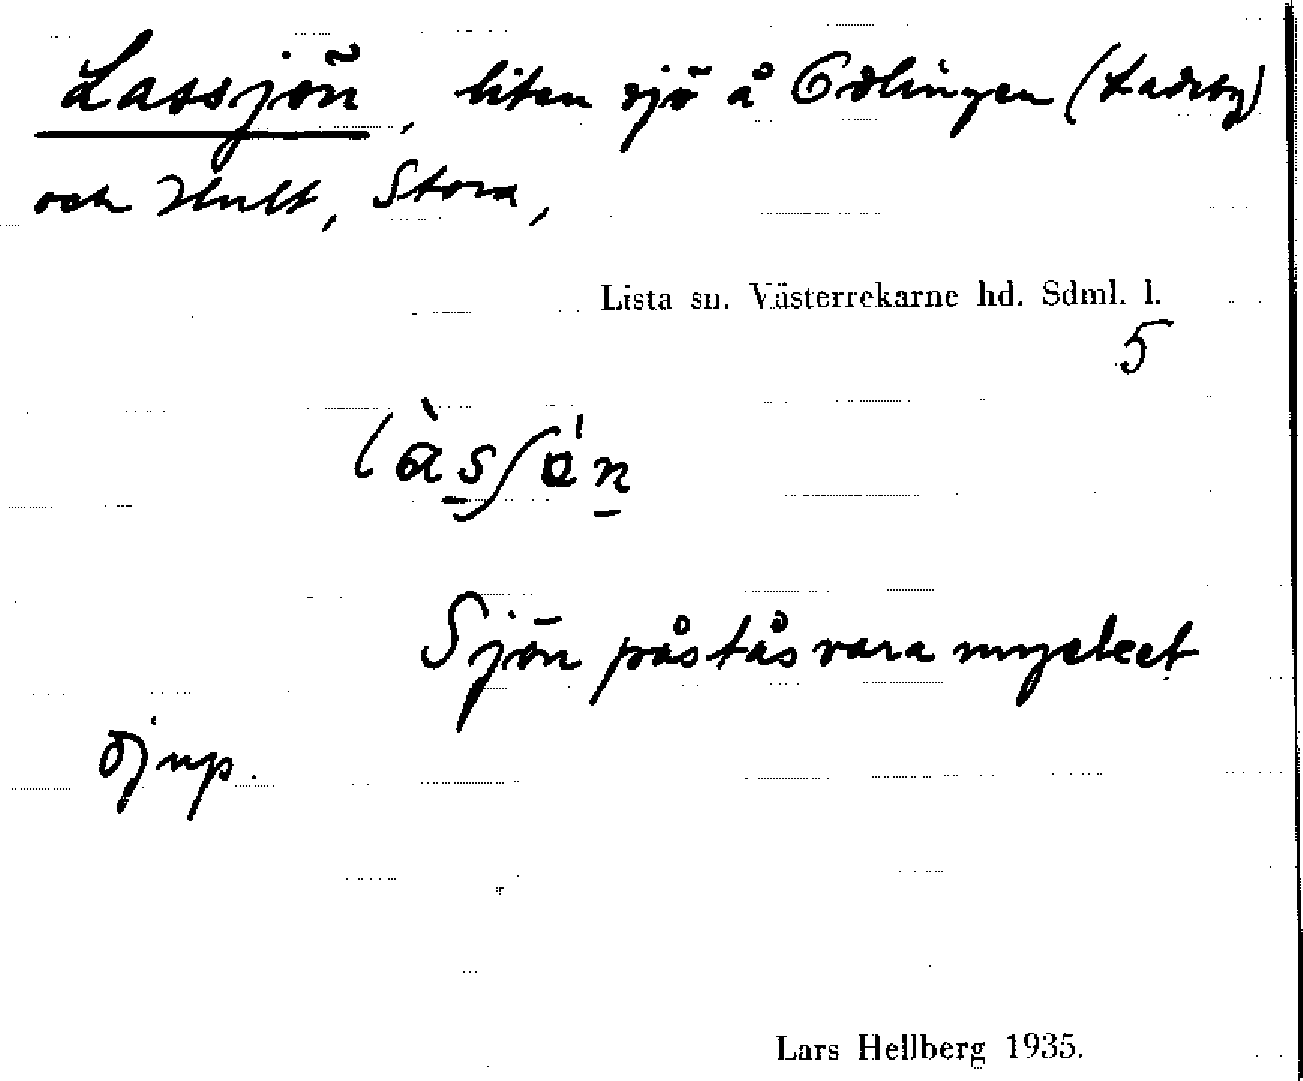 Lassjön, liten sjö å Odlingen (Ladsby)
och Hult, Stora,
Lista sn. Västerrekarne hd. Sdml. l.
5
Sjön påstås vara mycket
djup.
Lars Hellberg 1935.